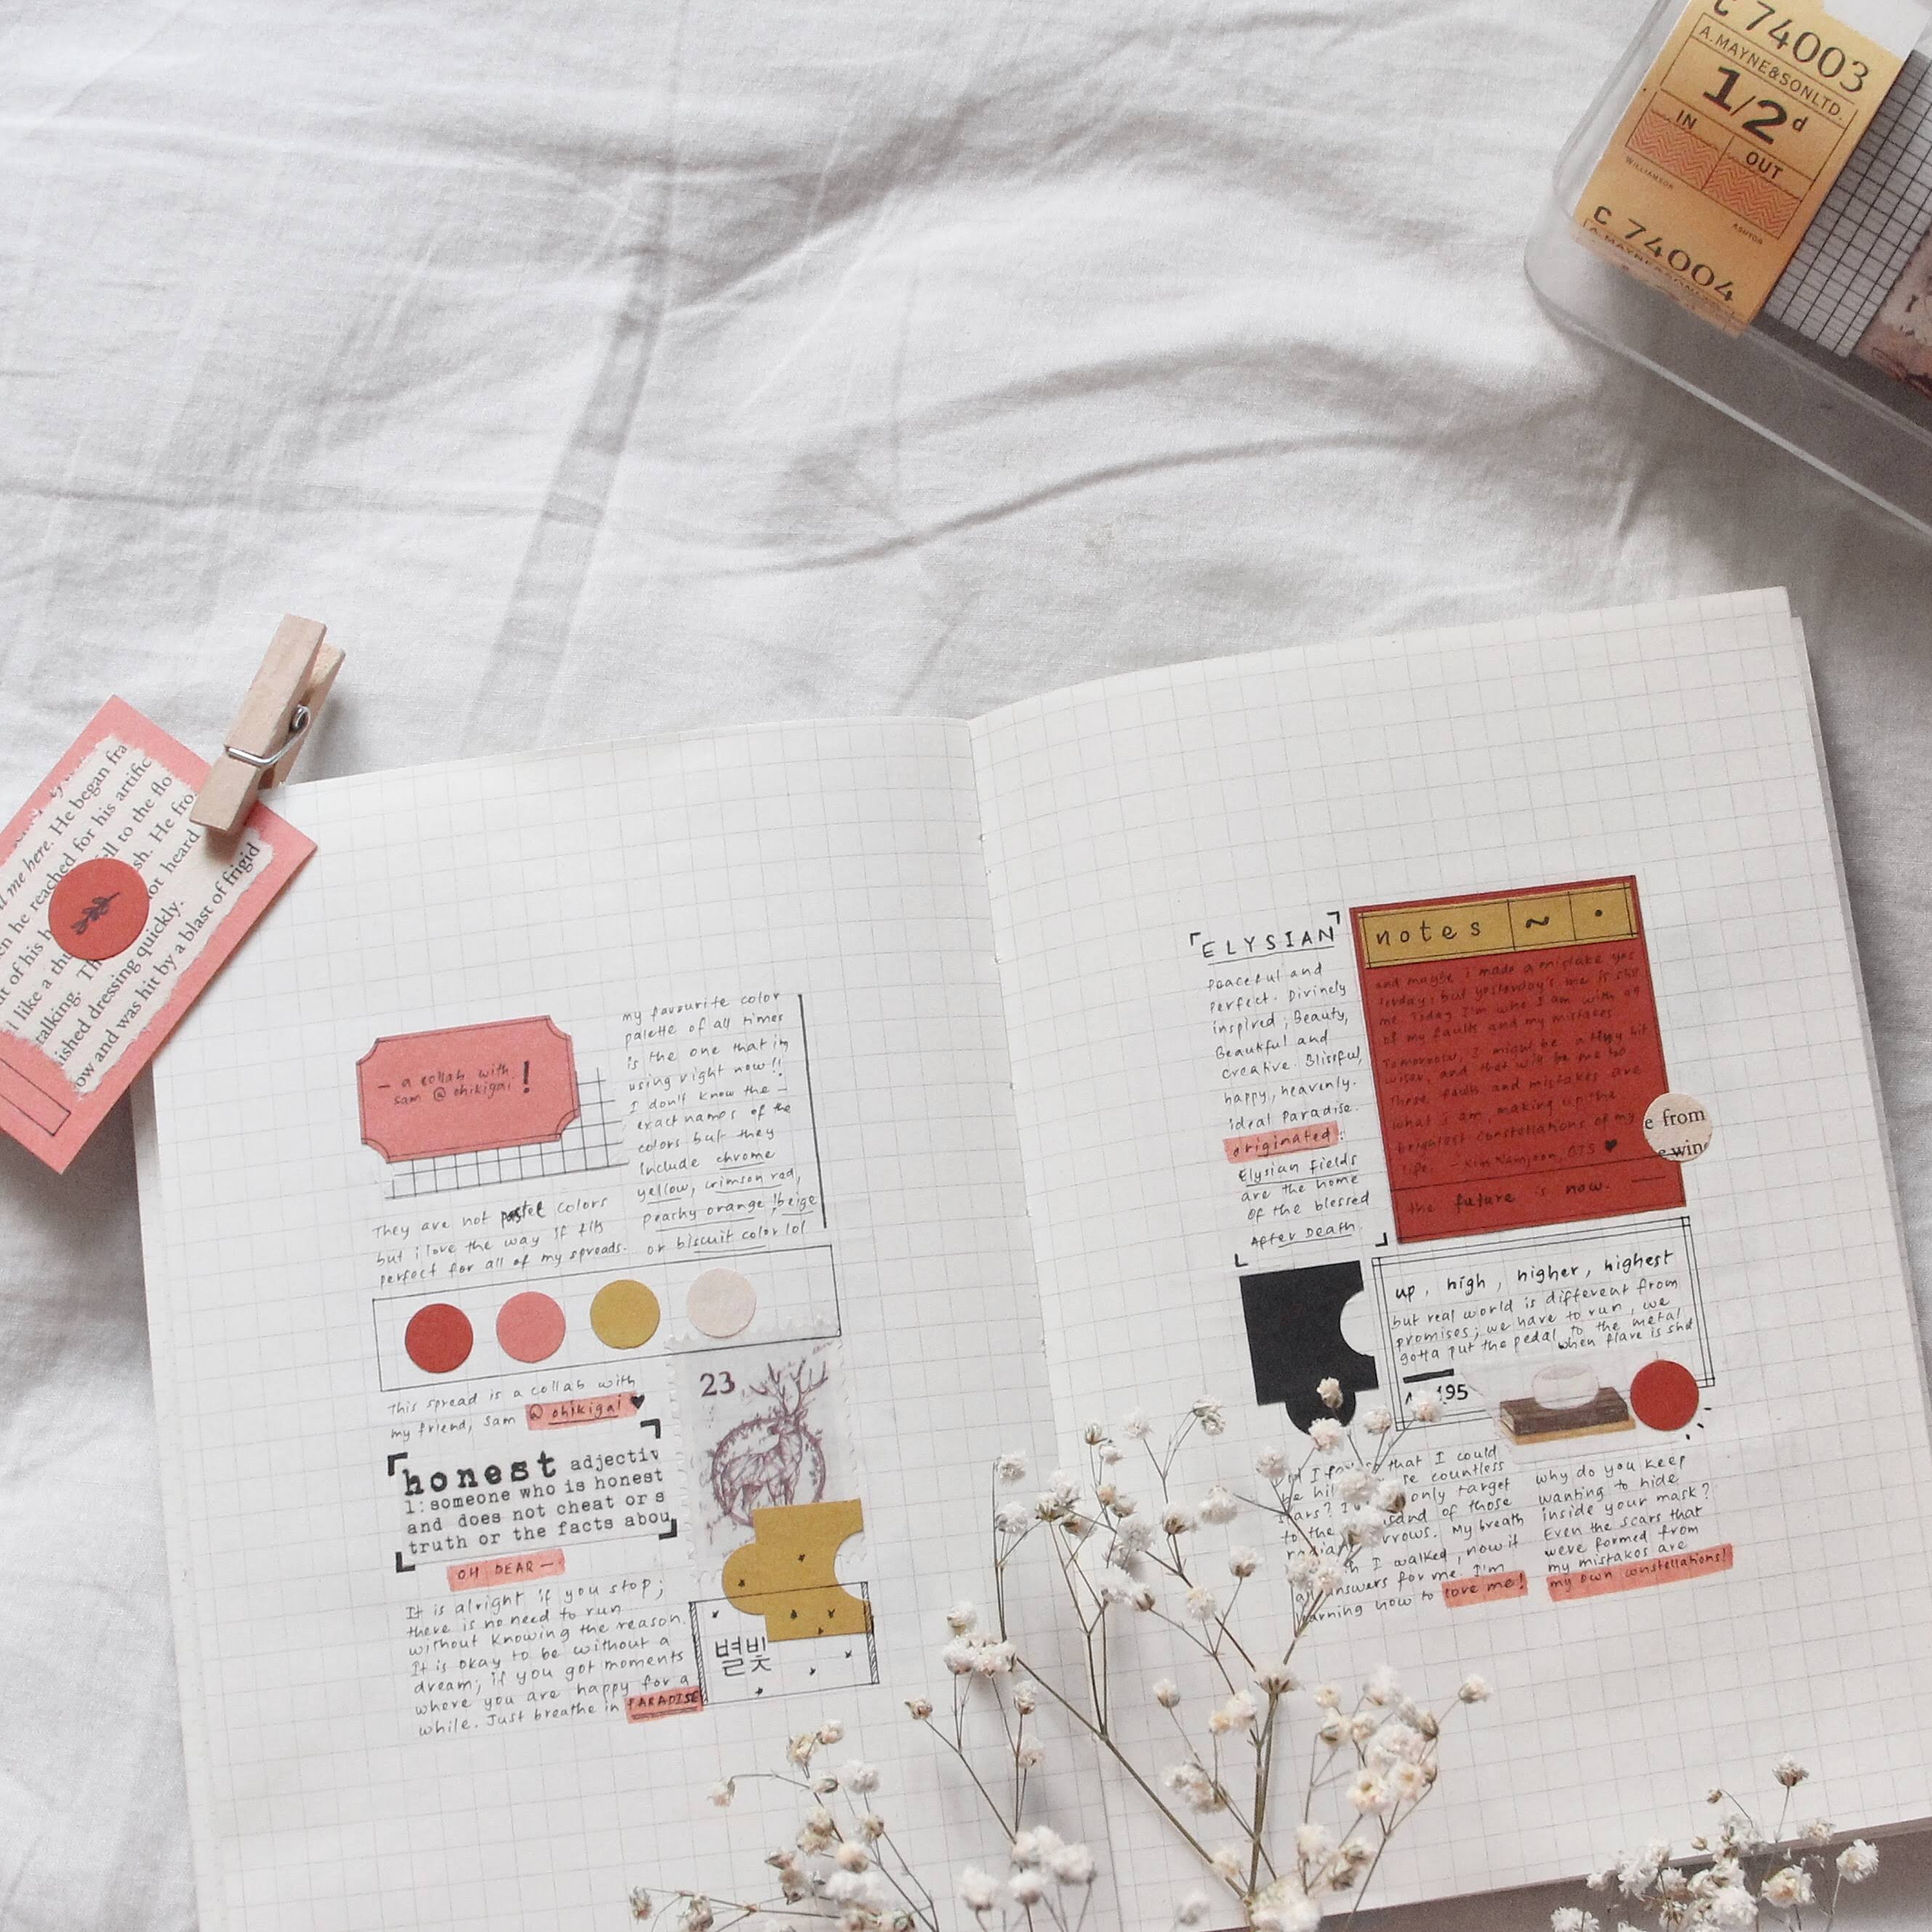 C 74003
A.MAYNE&SONLTD.
1/2d
IN
OUT
WILLIAMSON
ASHTON
C 74004
me here. He began fra
en he reached for his artific
ut of his
ell to the flo
l like a thu
sh. He fro
talking. Th
not heard
ished dressing quickly.
ow and was hit by a blast of frigid
– a collab with
sam @ohikigai !
my favourite color
palette of all times
is the one that im
using right now!!
I don't know the –
exact names of the
colors but they
include chrome
yellow, crimson red,
peachy orange, beige
or biscuit color lol
They are not pastel colors
but i love the way it fits
perfect for all of my spreads.
This spread is a collab with
my friend, Sam @ohikigai ♥
23
honest adjectiv
1: someone who is honest
and does not cheat or s
truth or the facts abou
OH DEAR —
It is alright if you stop;
there is no need to run
without knowing the reason.
It is okay to be without a
dream; if you got moments
where you are happy for a
while. Just breathe in PARADISE
별빛
ELYSIAN
Peaceful and
Perfect. Divinely
inspired; Beauty,
Beautiful and
creative. Blissful,
happy, heavenly.
ideal Paradise.
originated:
Elysian fields
are the home
of the blessed
After Death.
notes ~ •
and maybe i made a mistake yes
terday; but yesterday's me is still
me. Today I'm who I am with all
of my faults and my mistakes.
Tomorrow, I might be a tiny bit
wiser, and that will be me too
These faults and mistakes are
what i am, making up the
brightest constellations of my
life. – Kim Namjoon, BTS ♥
the future is now. —
e from
e win
up, high, higher, highest
but real world is different from
promises; we have to run, we
gotta put the pedal to the metal
when flare is shot
195
that I could
se countless
only target
to the
sand of those
rrows. My breath
I walked, now it
answers for me. I'm
learning how to love me!
why do you keep
wanting to hide
inside your mask?
Even the scars that
were formed from
my mistakes are
my own constellations!